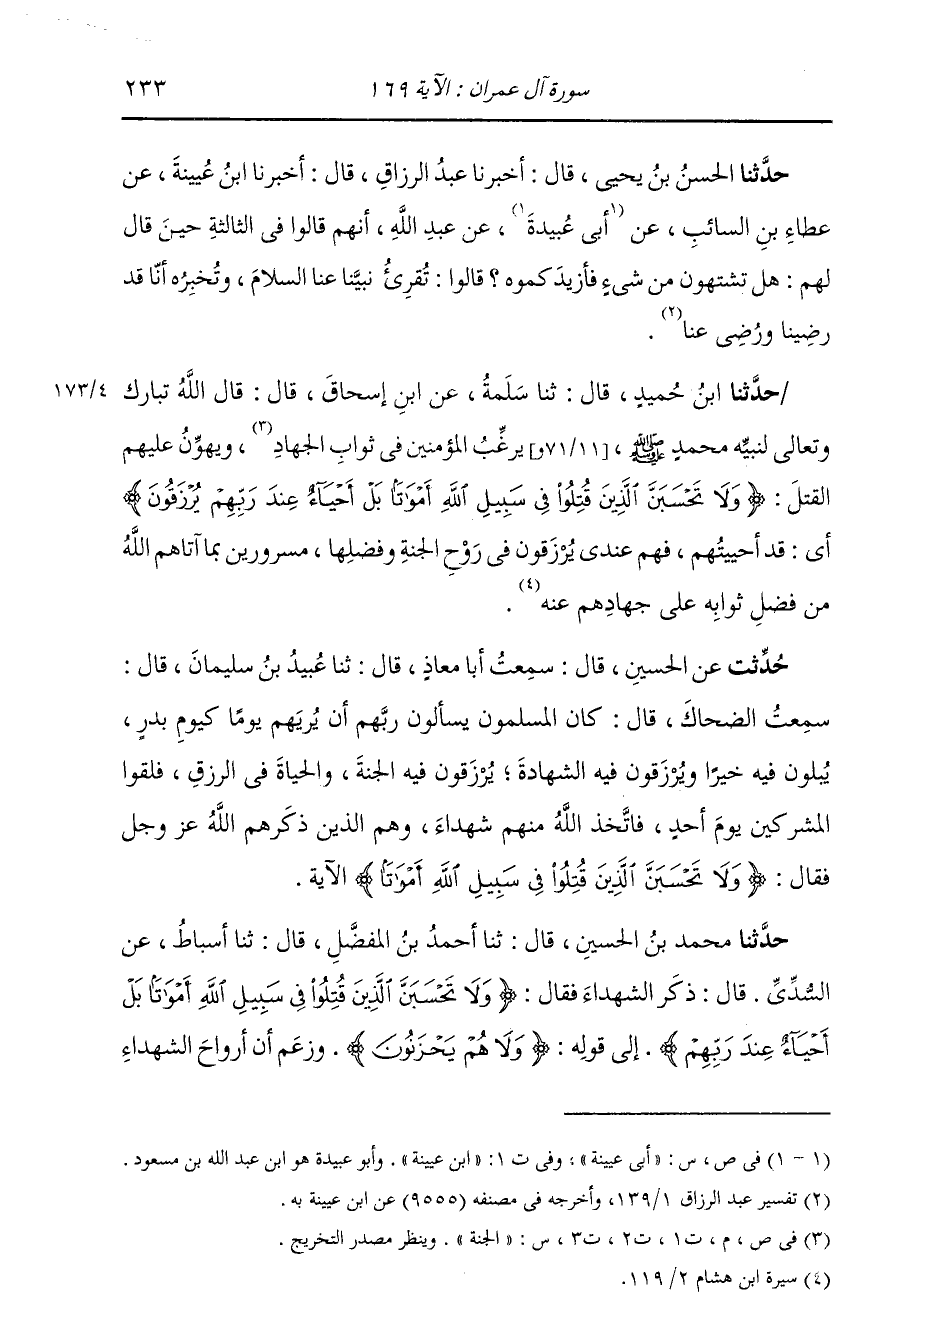 سورة آل عمران : الآية ١٦٩
٢٣٣
حدَّثنا الحسنُ بنُ يحيى ، قال : أخبرنا عبدُ الرزاقِ ، قال : أخبرنا ابنُ عُيينةَ ، عن
عطاءِ بنِ السائبِ ، عن (١أبى عُبيدةَ١) ، عن عبدِ اللَّهِ ، أنهم قالوا فى الثالثةِ حينَ قال
لهم : هل تشتهون من شىءٍ فأزيدَكموه ؟ قالوا : تُقرِئُ نبيَّنا عنا السلامَ ، وتُخبِرُه أنَّا قد
رضِينا ورُضِى عنا(٢) .
/حدَّثنا ابنُ حُميدٍ ، قال : ثنا سَلَمةُ ، عن ابنِ إسحاقَ ، قال : قال اللَّهُ تبارك
١٧٣/٤
وتعالى لنبيِّه محمدٍ ﷺ ، [٧١/١١و] يرغِّبُ المؤمنين فى ثوابِ الجهادِ(٣) ، ويهوِّنُ عليهم
القتلَ : ﴿ وَلَا تَحْسَبَنَّ ٱلَّذِينَ قُتِلُوا۟ فِى سَبِيلِ ٱللَّهِ أَمْوَٰتًۢا بَلْ أَحْيَآءٌ عِندَ رَبِّهِمْ يُرْزَقُونَ ﴾
أى : قد أحييتُهم ، فهم عندى يُرْزَقون فى رَوْحِ الجنةِ وفضلِها ، مسرورين بما آتاهم اللَّهُ
من فضلِ ثوابِه على جهادِهم عنه(٤) .
حُدِّثت عن الحسينِ ، قال : سمِعتُ أبا معاذٍ ، قال : ثنا عُبيدُ بنُ سليمانَ ، قال :
سمِعتُ الضحاكَ ، قال : كان المسلمون يسألون ربَّهم أن يُريَهم يومًا كيومِ بدرٍ ،
يُبلون فيه خيرًا ويُرْزَقون فيه الشهادةَ ؛ يُرْزَقون فيه الجنةَ ، والحياةَ فى الرزقِ ، فلقوا
المشركين يومَ أحدٍ ، فاتَّخذ اللَّهُ منهم شهداءَ ، وهم الذين ذكَرهم اللَّهُ عز وجل
فقال : ﴿ وَلَا تَحْسَبَنَّ ٱلَّذِينَ قُتِلُوا۟ فِى سَبِيلِ ٱللَّهِ أَمْوَٰتًۢا ﴾ الآية .
حدَّثنا محمد بنُ الحسينِ ، قال : ثنا أحمدُ بنُ المفضَّلِ ، قال : ثنا أسباطُ ، عن
السُّدِّىِّ . قال : ذكَر الشهداءَ فقال : ﴿ وَلَا تَحْسَبَنَّ ٱلَّذِينَ قُتِلُوا۟ فِى سَبِيلِ ٱللَّهِ أَمْوَٰتًۢا بَلْ
أَحْيَآءٌ عِندَ رَبِّهِمْ ﴾ . إلى قولِه : ﴿ وَلَا هُمْ يَحْزَنُونَ ﴾ . وزعَم أن أرواحَ الشهداءِ
(١ - ١) فى ص ، س : « أبى عيينة » ؛ وفى ت ١ : « ابن عيينة » . وأبو عبيدة هو ابن عبد الله بن مسعود .
(٢) تفسير عبد الرزاق ١٣٩/١، وأخرجه فى مصنفه (٩٥٥٥) عن ابن عيينة به .
(٣) فى ص ، م ، ت١ ، ت٢ ، ت٣ ، س : « الجنة » . وينظر مصدر التخريج .
(٤) سيرة ابن هشام ٢/ ١١٩.